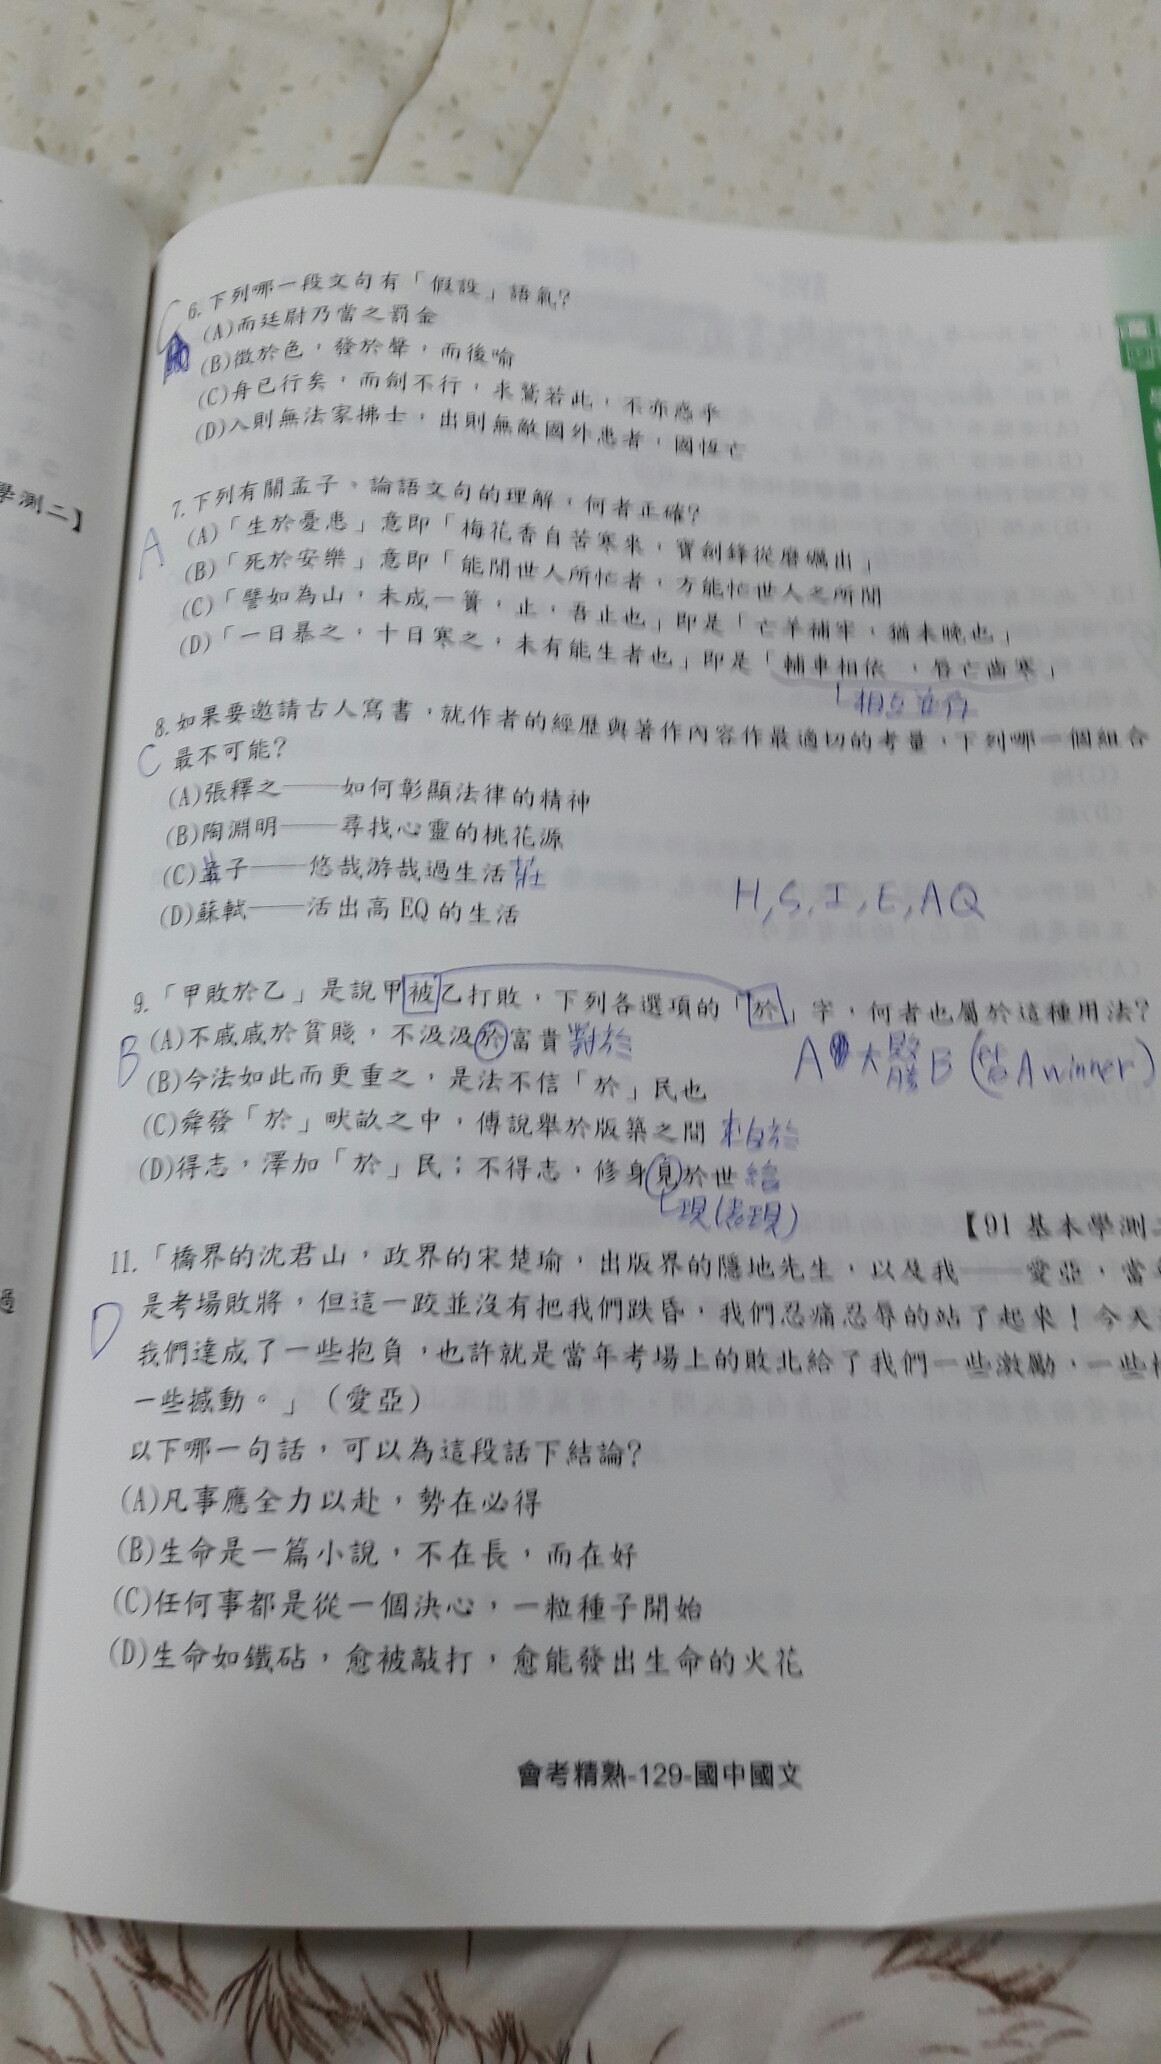 學測二】
C
6.下列哪一段文句有「假設」語氣?
(A)而廷尉乃當之罰金
(B)徵於色,發於聲,而後喻
(C)舟已行矣,而劍不行,求劍若此,不亦惑乎
(D)入則無法家拂士,出則無敵國外患者,國恆亡
7.下列有關孟子、論語文句的理解,何者正確?
A
(A)「生於憂患」意即「梅花香自苦寒來,寶劍鋒從磨礪出」
(B)「死於安樂」意即「能閒世人所忙者,方能忙世人之所閒
(C)「譬如為山,未成一簣,止,吾止也」即是「亡羊補牢,猶未晚也」
(D)「一日暴之,十日寒之,未有能生者也」即是「輔車相依 ,唇亡齒寒」
相互並存
8.如果要邀請古人寫書,就作者的經歷與著作內容作最適切的考量,下列哪一個組合
C 最不可能?
(A)張釋之──如何彰顯法律的精神
(B)陶淵明──尋找心靈的桃花源
(C)孟子──悠哉游哉過生活 莊
(D)蘇軾──活出高 EQ 的生活
H,S,I,E,AQ
9.「甲敗於乙」是說甲被乙打敗,下列各選項的「於」字,何者也屬於這種用法?
B
(A)不戚戚於貧賤,不汲汲於富貴 對於
A大勝B(A winner)
(B)今法如此而更重之,是法不信「於」民也
(C)舜發「於」畎畝之中,傅說舉於版築之間 來自於
(D)得志,澤加「於」民;不得志,修身見於世 給
現(表現)
【91 基本學測二
11.「橋界的沈君山,政界的宋楚瑜,出版界的隱地先生,以及我──愛亞,當
D
是考場敗將,但這一跤並沒有把我們跌昏,我們忍痛忍辱的站了起來!今天
我們達成了一些抱負,也許就是當年考場上的敗北給了我們一些激勵,一些
一些撼動。」(愛亞)
以下哪一句話,可以為這段話下結論?
(A)凡事應全力以赴,勢在必得
(B)生命是一篇小說,不在長,而在好
(C)任何事都是從一個決心,一粒種子開始
(D)生命如鐵砧,愈被敲打,愈能發出生命的火花
會考精熟-129-國中國文